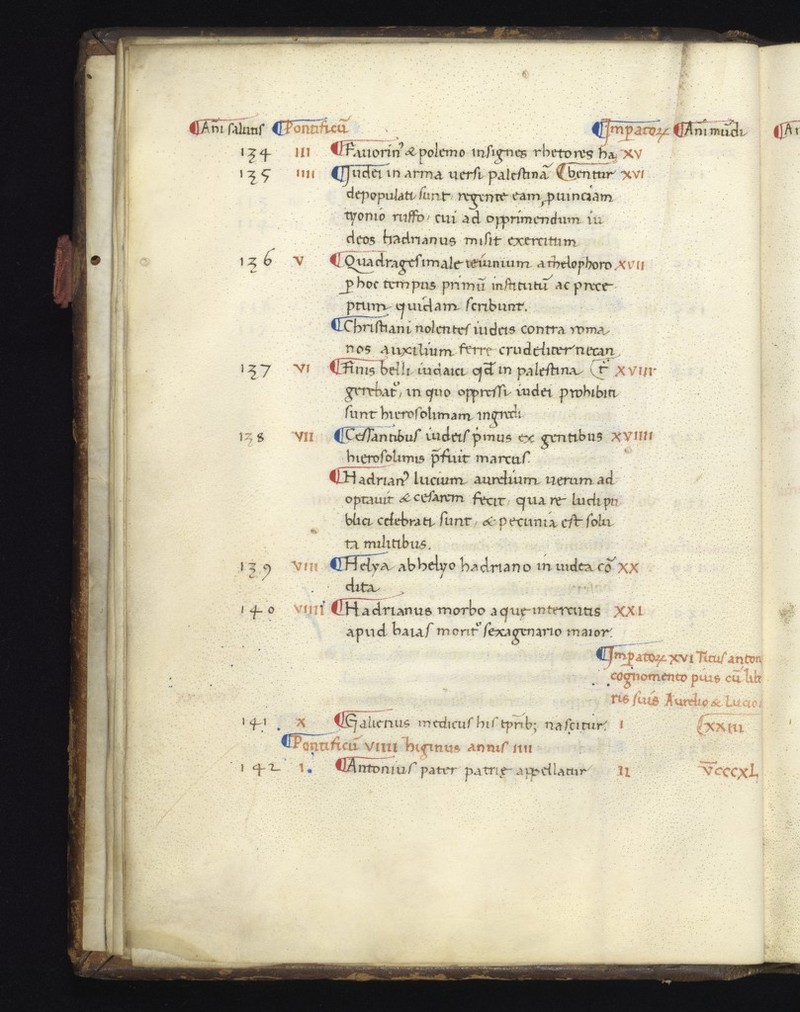 ¶Anni salutis ¶Pontificũ ¶Imperatoꝝ ¶Anni mũdi
134 III ¶Fauorinꝰ & polemo insignes rhetores ha XV
135 IIII ¶Iudei in arma uersi palestinã (bentur XVI
depopulati sunt regente eam ꝓuinciam
tyonio ruffo, cui ad opprimendum iu
deos hadrianus misit exercitum
136 V ¶Quadragesimale ieiunium a thelophoro XVII
ꝑ hoc tempus primũ institutũ ac prece
ptum quidam scribunt.
¶Christiani nolentes iudeis contra roma
nos auxilium ferre crudeliter necan
137 VI ¶Finis belli iudaici qđ in palestina (tʳ XVIII
gerebatʳ, in quo oppressi iudei prohibiti
sunt hierosolimam ingredi
138 VII ¶Cessantibus iudeis pͥmus ex gentibus XVIIII
hierosolimis p̃fuit marcus.
¶Hadrianꝰ lucium aurelium uerum ad
optauit & cesarem fecit, qua re ludi pu
blici celebrati sunt, & pecunia est solu
ta militibus.
139 VIII ¶Helya ab helyo hadriano in iudea cõ XX
dita
140 VIIII ¶Hadrianus morbo aquę intercutis XXI
apud baias moritʳ sexagenario maior.
¶Imperatoꝝ XVI Titus anton
cognomento pius cũ libe
ris suis Aurelio & Lucio
141 X ¶Galienus medicus his tp̃rib; nascitur. I (XXIII
¶Pontificũ VIIII higinus annis IIII
142 I. ¶Antonius pater patrię appellatur II V̅CCCXL